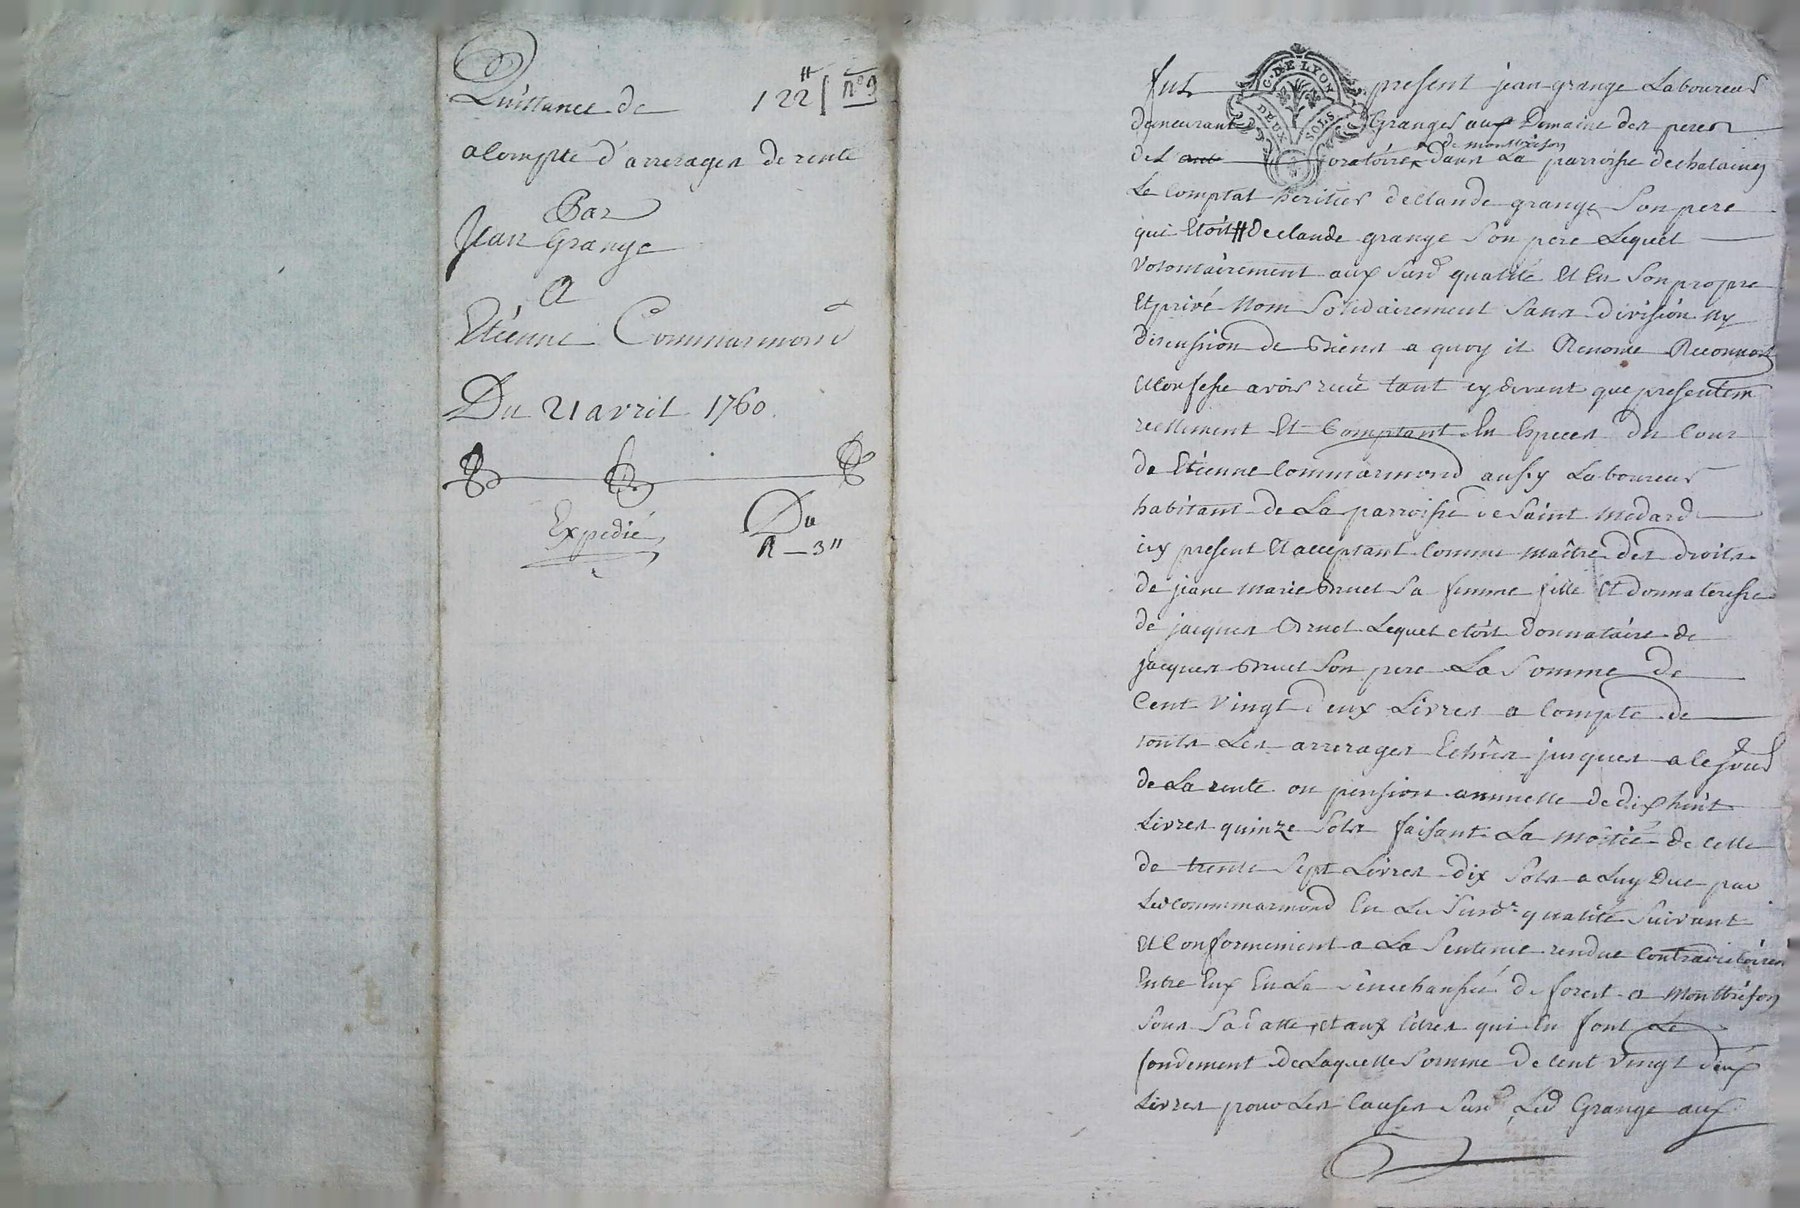 Quittance de 122ᵗᵗ n° 9
acompte d'arrerages de rente
Par
Jean Grange
A
Etienne Commarmond
Du 21 avril 1760.
Expedié Du
R - 3ᵗᵗ
G. DE LYON
DEUX SOLS
fut present jean grange Laboureur
demeurant Granges aux Domaine des peres
de L'oratoire de montbrison dans La parroisse de chalain
Le comptal heritier de Claude grange Son pere
qui Etoit de claude grange Son pere Lequel
Volontairement aux susd qualité Et En Son propre
Et privé Nom Solidairement Sans division ny
discussion de Biens a quoy il Renonce Reconnoit
Et Confesse avoir receu tant cy devant que presentem
reellement Et Comptant En Especes du Cour
de Etienne Commarmond aussy Laboureur
habitant de La parroisse de Saint medard
icy present Et acceptant Comme maître des droits
de jeane marie Bruel Sa femme fille Et donnateresse
de jacques Bruel Lequel etoit donnataire de
jacques Bruel Son pere La Somme de
Cent Vingt deux Livres a Compte de
touts Les arrerages Echûs jusques a Ce jour
de La rente ou pension annuelle de dix huit
Livres quinze Sols faisant La moitié de celle
de trente Sept Livres dix Sols a Luy Due par
Led commarmond En La Susd qualité Suivant
Et Conformement a La Sentence rendue Contradictoirem
Entre Eux En La senechaussée de forest a Montbrison
Sous Sa datte, et aux titres qui En font Le
fondement de Laquelle Somme de Cent Vingt deux
Livres pour Les Causes Susd Led Grange aux